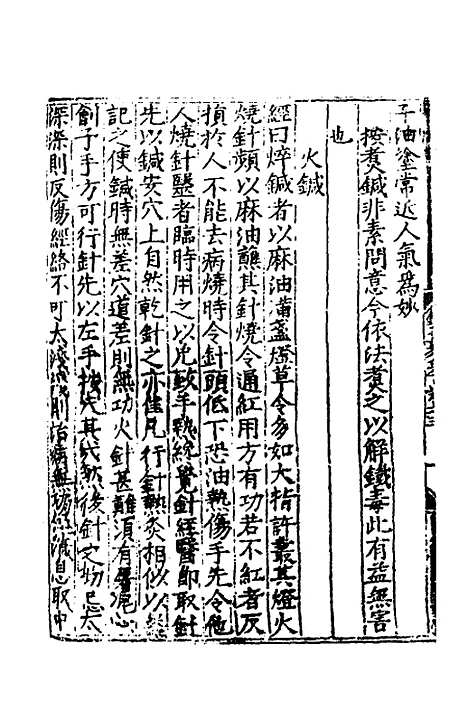 子油塗常近人氣爲妙
按煑鍼非素問意今依法煑之以解鐵毒此有益無害
也
火鍼
經曰焠鍼者以麻油滿盞燈草令多如大指許叢其燈火
燒針頻以麻油蘸其針燒令通紅用方有功若不紅者反
損於人不能去病燒時令針頭低下恐油熱傷手先令他
人燒針醫者臨時用之以免手熱 醫卽取針
先以鍼安穴上自然乾針之亦佳凡行針 灸相似以
記之使鍼時無差穴道差則無功火針甚難須有 心
創子手方可行針先以左手按 其穴然後針之切忌太
深深則反傷經絡不可太淺淺則治病無功 消息取中